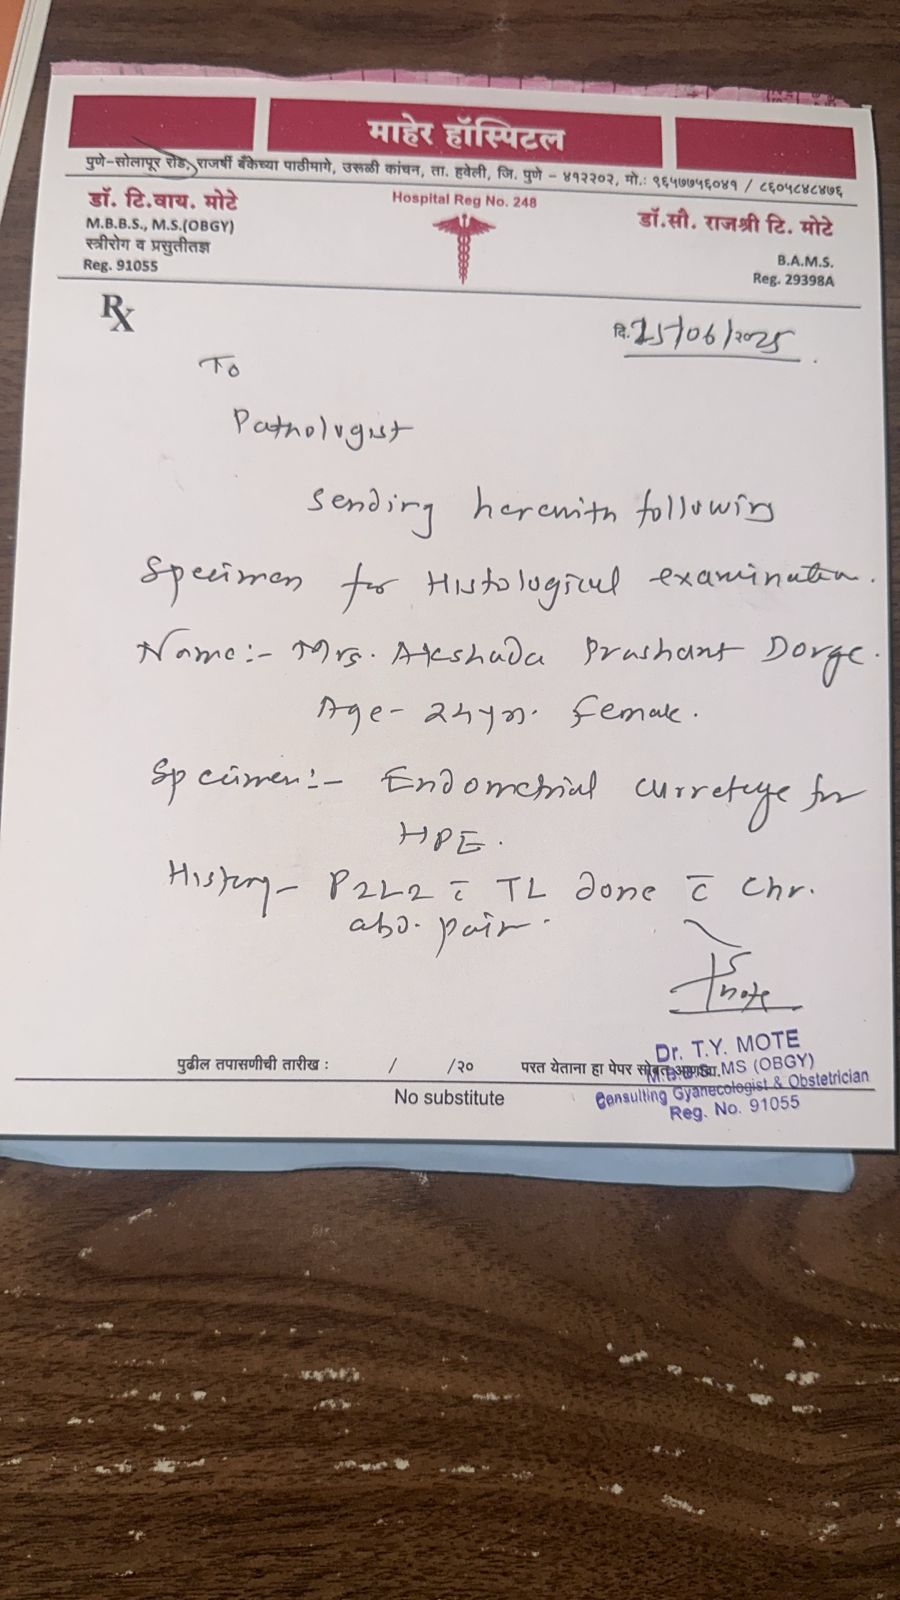 माहेर हॉस्पिटल
पुणे-सोलापूर रोड, राजर्षी बँकेच्या पाठीमागे, उरूळी कांचन, ता. हवेली, जि. पुणे - ४१२२०२, मो.: ९६५७७५६०४१ / ८६०५४८४७६
डॉ. टि.वाय. मोटे
M.B.B.S., M.S.(OBGY)
स्त्रीरोग व प्रसुतीतज्ञ
Reg. 91055
Hospital Reg No. 248
डॉ.सौ. राजश्री टि. मोटे
B.A.M.S.
Reg. 29398A
Rx
दि. 25/06/2025
To
Pathologist
Sending herewith following
Specimen for Histological examination.
Name:- Mrs. Akshada Prashant Dorge.
Age- 24yrs. Female.
Specimen:- Endometrial curretege for
HPE.
History- P2L2 c̄ TL done c̄ Chr.
abd. pain.
Tmote
पुढील तपासणीची तारीख : / /२० परत येताना हा पेपर सोबत आणावा.
No substitute
Dr. T.Y. MOTE
M.B.B.S. MS (OBGY)
Consulting Gyanecologist & Obstetrician
Reg. No. 91055